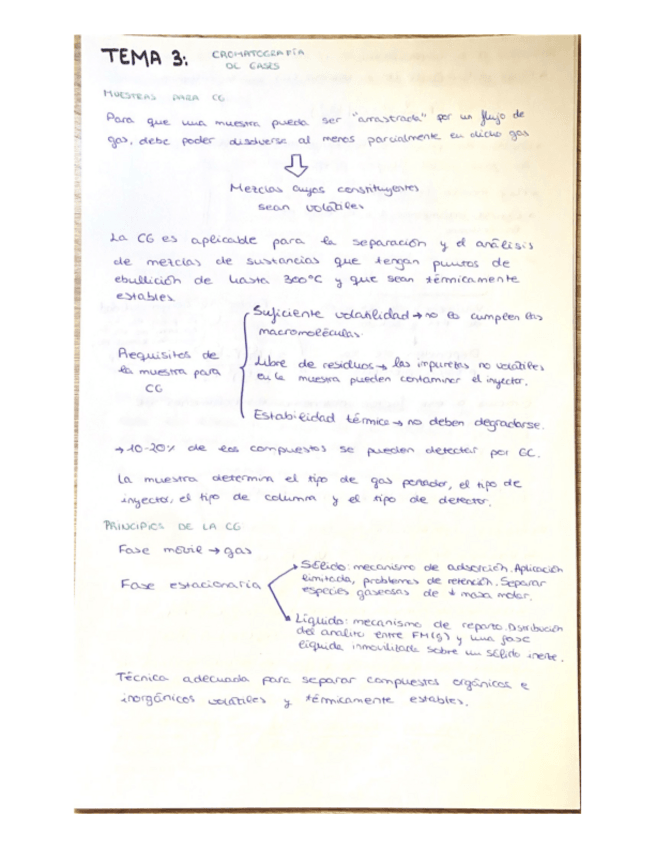 TEMA 3: CROMATOGRAFÍA
DE GASES
MUESTRAS PARA CG
Para que una muestra pueda ser "arrastrada" por un flujo de
gas, debe poder disolverse al menos parcialmente en dicho gas
Mezclas cuyos constituyentes
sean volátiles
La CG es aplicable para la separación y el análisis
de mezclas de sustancias que tengan puntos de
ebullición de hasta 300°C y que sean térmicamente
estables.
Requisitos de
la muestra para
CG
Suficiente volatilidad → no la cumplen las
macromoléculas.
Libre de residuos → las impurezas no volátiles
en la muestra pueden contaminar el inyector.
Estabilidad térmica → no deben degradarse.
→ 10-20% de los compuestos se pueden detectar por GC.
La muestra determina el tipo de gas portador, el tipo de
inyector, el tipo de columna y el tipo de detector.
PRINCIPIOS DE LA CG
Fase móvil → gas
Fase estacionaria
Sólido: mecanismo de adsorción. Aplicación
limitada, problemas de retención. Separar
especies gaseosas de masa molar.
Líquido: mecanismo de reparto. Distribución
del analito entre FM(g) y una fase
líquida inmovilizada sobre un sólido inerte.
Técnica adecuada para separar compuestos orgánicos e
inorgánicos volátiles y térmicamente estables.